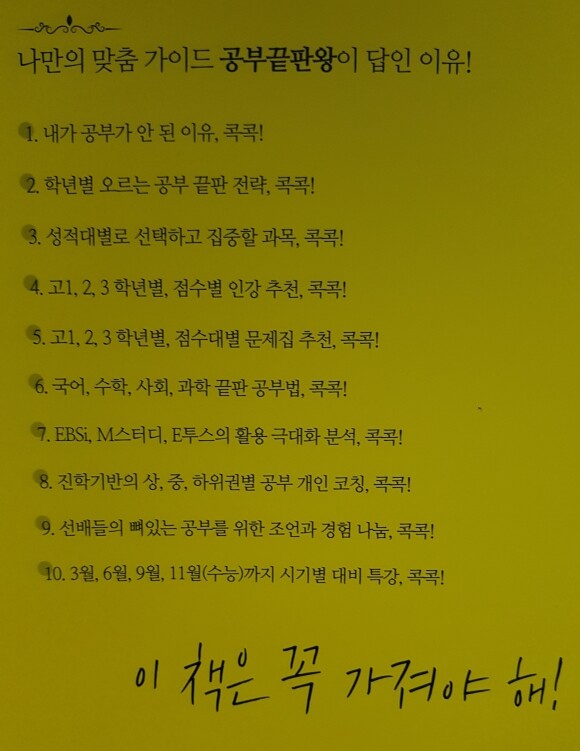 나만의 맞춤 가이드 공부끝판왕이 답인 이유!
1. 내가 공부가 안 된 이유, 콕콕!
2. 학년별 오르는 공부 끝판 전략, 콕콕!
3. 성적대별로 선택하고 집중할 과목, 콕콕!
4. 고1, 2, 3 학년별, 점수별 인강 추천, 콕콕!
5. 고1, 2, 3 학년별, 점수대별 문제집 추천, 콕콕!
6. 국어, 수학, 사회, 과학 끝판 공부법, 콕콕!
7. EBSi, M스터디, E투스의 활용 극대화 분석, 콕콕!
8. 진학기반의 상, 중, 하위권별 공부 개인 코칭, 콕콕!
9. 선배들의 뼈있는 공부를 위한 조언과 경험 나눔, 콕콕!
10. 3월, 6월, 9월, 11월(수능)까지 시기별 대비 특강, 콕콕!
이 책은 꼭 가져야 해!